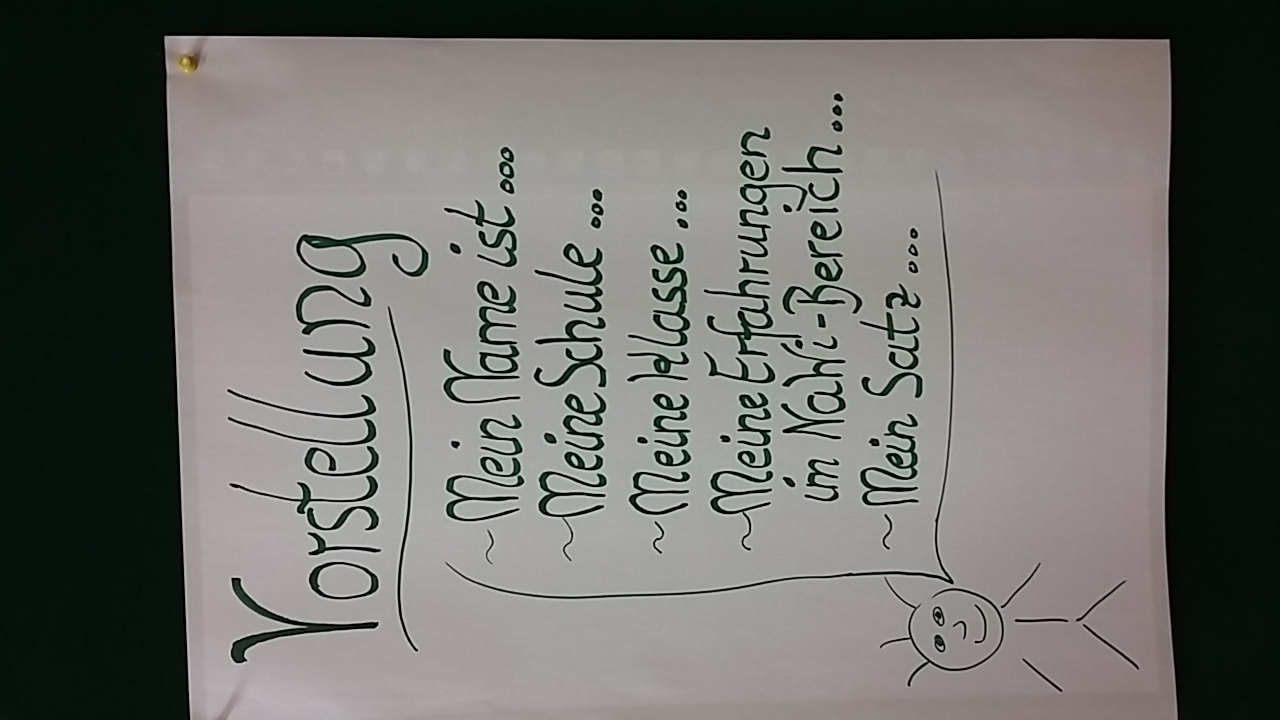 Vorstellung
~ Mein Name ist...
~ Meine Schule...
~ Meine Klasse...
~ Meine Erfahrungen
im NaWi-Bereich...
~ Mein Satz...